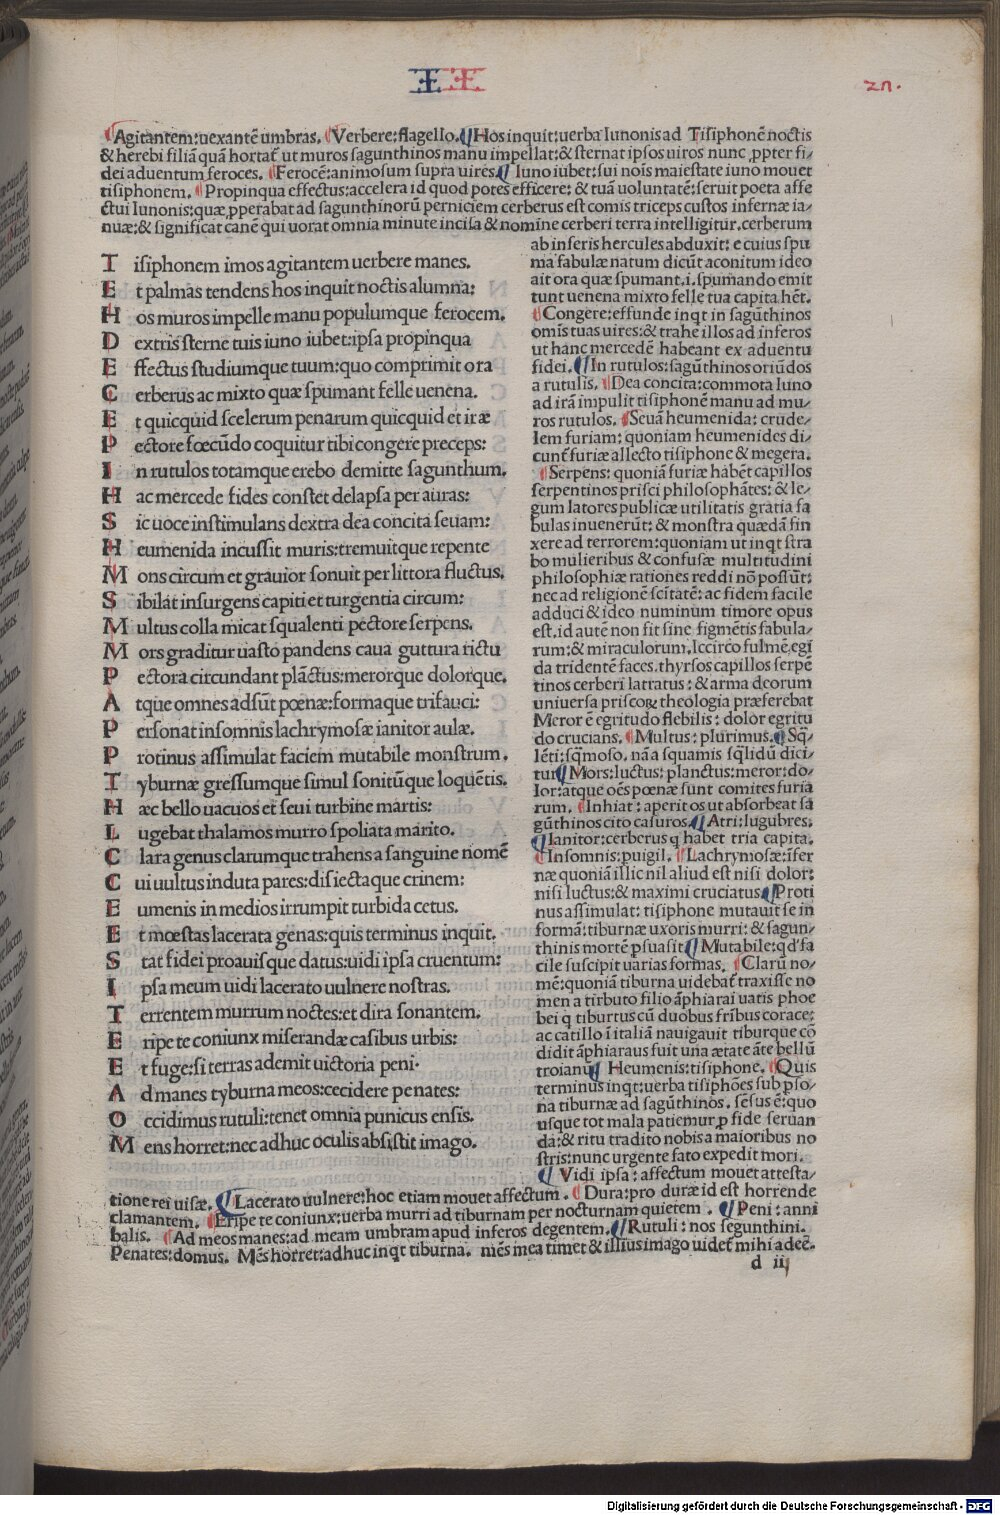 II
27.
Agitantem:uexantē umbras. Verbere:flagello. Hos inquit:uerba Iunonis ad Tisiphonē noctis
& herebi filiā quā hortat̄ ut muros sagunthinos manu impellat:& sternat ipsos uiros nunc ꝓpter fi-
dei aduentum feroces. Ferocē:animosum supra uires. Iuno iubet:sui nois maiestate iuno mouet
tisiphonem. Propinqua effectus:accelera id quod potes efficere: & tuā uoluntatē:seruit poeta affe
ctui Iunonis:quæ ꝓperabat ad sagunthinorū perniciem cerberus est comis triceps custos infernæ ia-
nuæ:& significat canē qui uorat omnia minute incisa & nomine cerberi terra intelligitur.cerberum
T isiphonem imos agitantem uerbere manes.
E t palmas tendens hos inquit noctis alumna:
H os muros impelle manu populumque ferocem.
D extris sterne tuis iuno iubet:ipsa propinqua
E ffectus studiumque tuum:quo comprimit ora
C erberus ac mixto quæ spumant felle uenena.
E t quicquid scelerum penarum quicquid et iræ
P ectore fœcūdo coquitur tibi congere preceps:
I n rutulos totamque erebo demitte sagunthum.
H ac mercede fides constet delapsa per auras:
S ic uoce instimulans dextra dea concita seuam:
H eumenida incussit muris:tremuitque repente
M ons circum et grauior sonuit per littora fluctus.
S ibilat insurgens capiti et turgentia circum:
M ultus colla micat squalenti pectore serpens.
M ors graditur uasto pandens caua guttura rictu
P ectora circundant plāctus:merorque dolorque.
A tque omnes adsūt pœnæ:formaque trifauci:
P ersonat insomnis lachrymosæ ianitor aulæ.
P rotinus assimulat faciem mutabile monstrum.
T yburnæ gressumque simul sonitūque loquētis.
H æc bello uacuos et seui turbine martis:
L ugebat thalamos murro spoliata marito.
C lara genus clarumque trahens a sanguine nomē
C ui uultus induta pares:disiectaque crinem:
E umenis in medios irrumpit turbida cetus.
E t mœstas lacerata genas:quis terminus inquit.
S tat fidei proauisque datus:uidi ipsa cruentum:
I psa meum uidi lacerato uulnere nostras.
T errentem murrum noctes:et dira sonantem.
E ripe te coniunx miserandæ casibus urbis:
E t fuge:si terras ademit uictoria peni.
A d manes tyburna meos:cecidere penates:
O ccidimus rutuli:tenet omnia punicus ensis.
M ens horret:nec adhuc oculis absistit imago.
ab inferis hercules abduxit: e cuius spu
ma fabulæ natum dicūt aconitum ideo
ait ora quæ spumant.i.spumando emit
tunt uenena mixto felle tua capita hēt.
Congere:effunde inqt in sagūthinos
omīs tuas uires:& trahe illos ad inferos
ut hanc mercedē habeant ex aduentu
fidei. In rutulos:sagūthinos oriūdos
a rutulis. Dea concita:commota Iuno
ad irā impulit tisiphonē manu ad mu-
ros rutulos. Seuā heumenida: crude-
lem furiam: quoniam heumenides di-
cunt̄ furiæ allecto tisiphone & megera.
Serpens: quoniā furiæ habēt capillos
serpentinos prisci philosophātes: & le-
gum latores publicæ utilitatis gratia fa
bulas inuenerūt: & monstra quædā fin
xere ad terrorem:quoniam ut inqt stra
bo mulieribus & confusæ multitudini
philosophiæ rationes reddi nō possūt:
nec ad religionē scītatē: ac fidem facile
adduci & ideo numinum timore opus
est.id autē non fit sine figmētis fabula-
rum:& miraculorum.Iccirco fulmē,egi
da tridentē faces.thyrsos capillos serpē
tinos cerberi latratus: & arma deorum
uniuersa priscoꝝ theologia præferebat
Meror ē egritudo flebilis: dolor egritu
do crucians. Multus: plurimus. Sq̄-
lēti:sq̄moso. nā a squamis sq̄lidū dici-
tur Mors:luctus: planctus:meror:do-
lor:atque oēs pœnæ sunt comites furia
rum. Inhiat: aperit os ut absorbeat sa
gūthinos cito casuros. Atri:lugubres.
Ianitor:cerberus q habet tria capita.
Insomnis:puigil. Lachrymosæ:īfer
næ quoniā illic nil aliud est nisi dolor:
nisi luctus:& maximi cruciatus. Proti
nus assimulat: tisiphone mutauit se in
formā:tiburnæ uxoris murri: & sagun-
thinis mortē ꝑsuasit Mutabile:qd' fa
cile suscipit uarias formas. Clarū no-
mē:quoniā tiburna uidebat̄ traxisse no
men a tirbuto filio āphiarai uatis phoe
bei q tiburtus cū duobus frībus corace:
ac catillo ī italiā nauigauit tiburque cō
didit āphiaraus fuit una ætate āte bellū
troianū Heumenis:tisiphone. Quis
terminus inqt:uerba tisiphōes sub ꝑso-
na tiburnæ ad sagūthinos. sēsus ē:quo
usque tot mala patiemur ꝓ fide seruan
da:& ritu tradito nobis a maioribus no
stris:nunc urgente fato expedit mori.
Vidi ipsa: affectum mouet attesta-
tione rei uisæ. Lacerato uulnere:hoc etiam mouet affectum. Dura:pro duræ id est horrende
clamantem. Eripe te coniunx:uerba murri ad tiburnam per nocturnam quietem. Peni: anni
balis. Ad meos manes:ad meam umbram apud inferos degentem. Rutuli: nos segunthini.
Penates:domus. Mēs horret:adhuc inqt tiburna. mēs mea timet & illius imago uidet̄ mihi adeē.
d iij
Digitalisierung gefördert durch die Deutsche Forschungsgemeinschaft - DFG